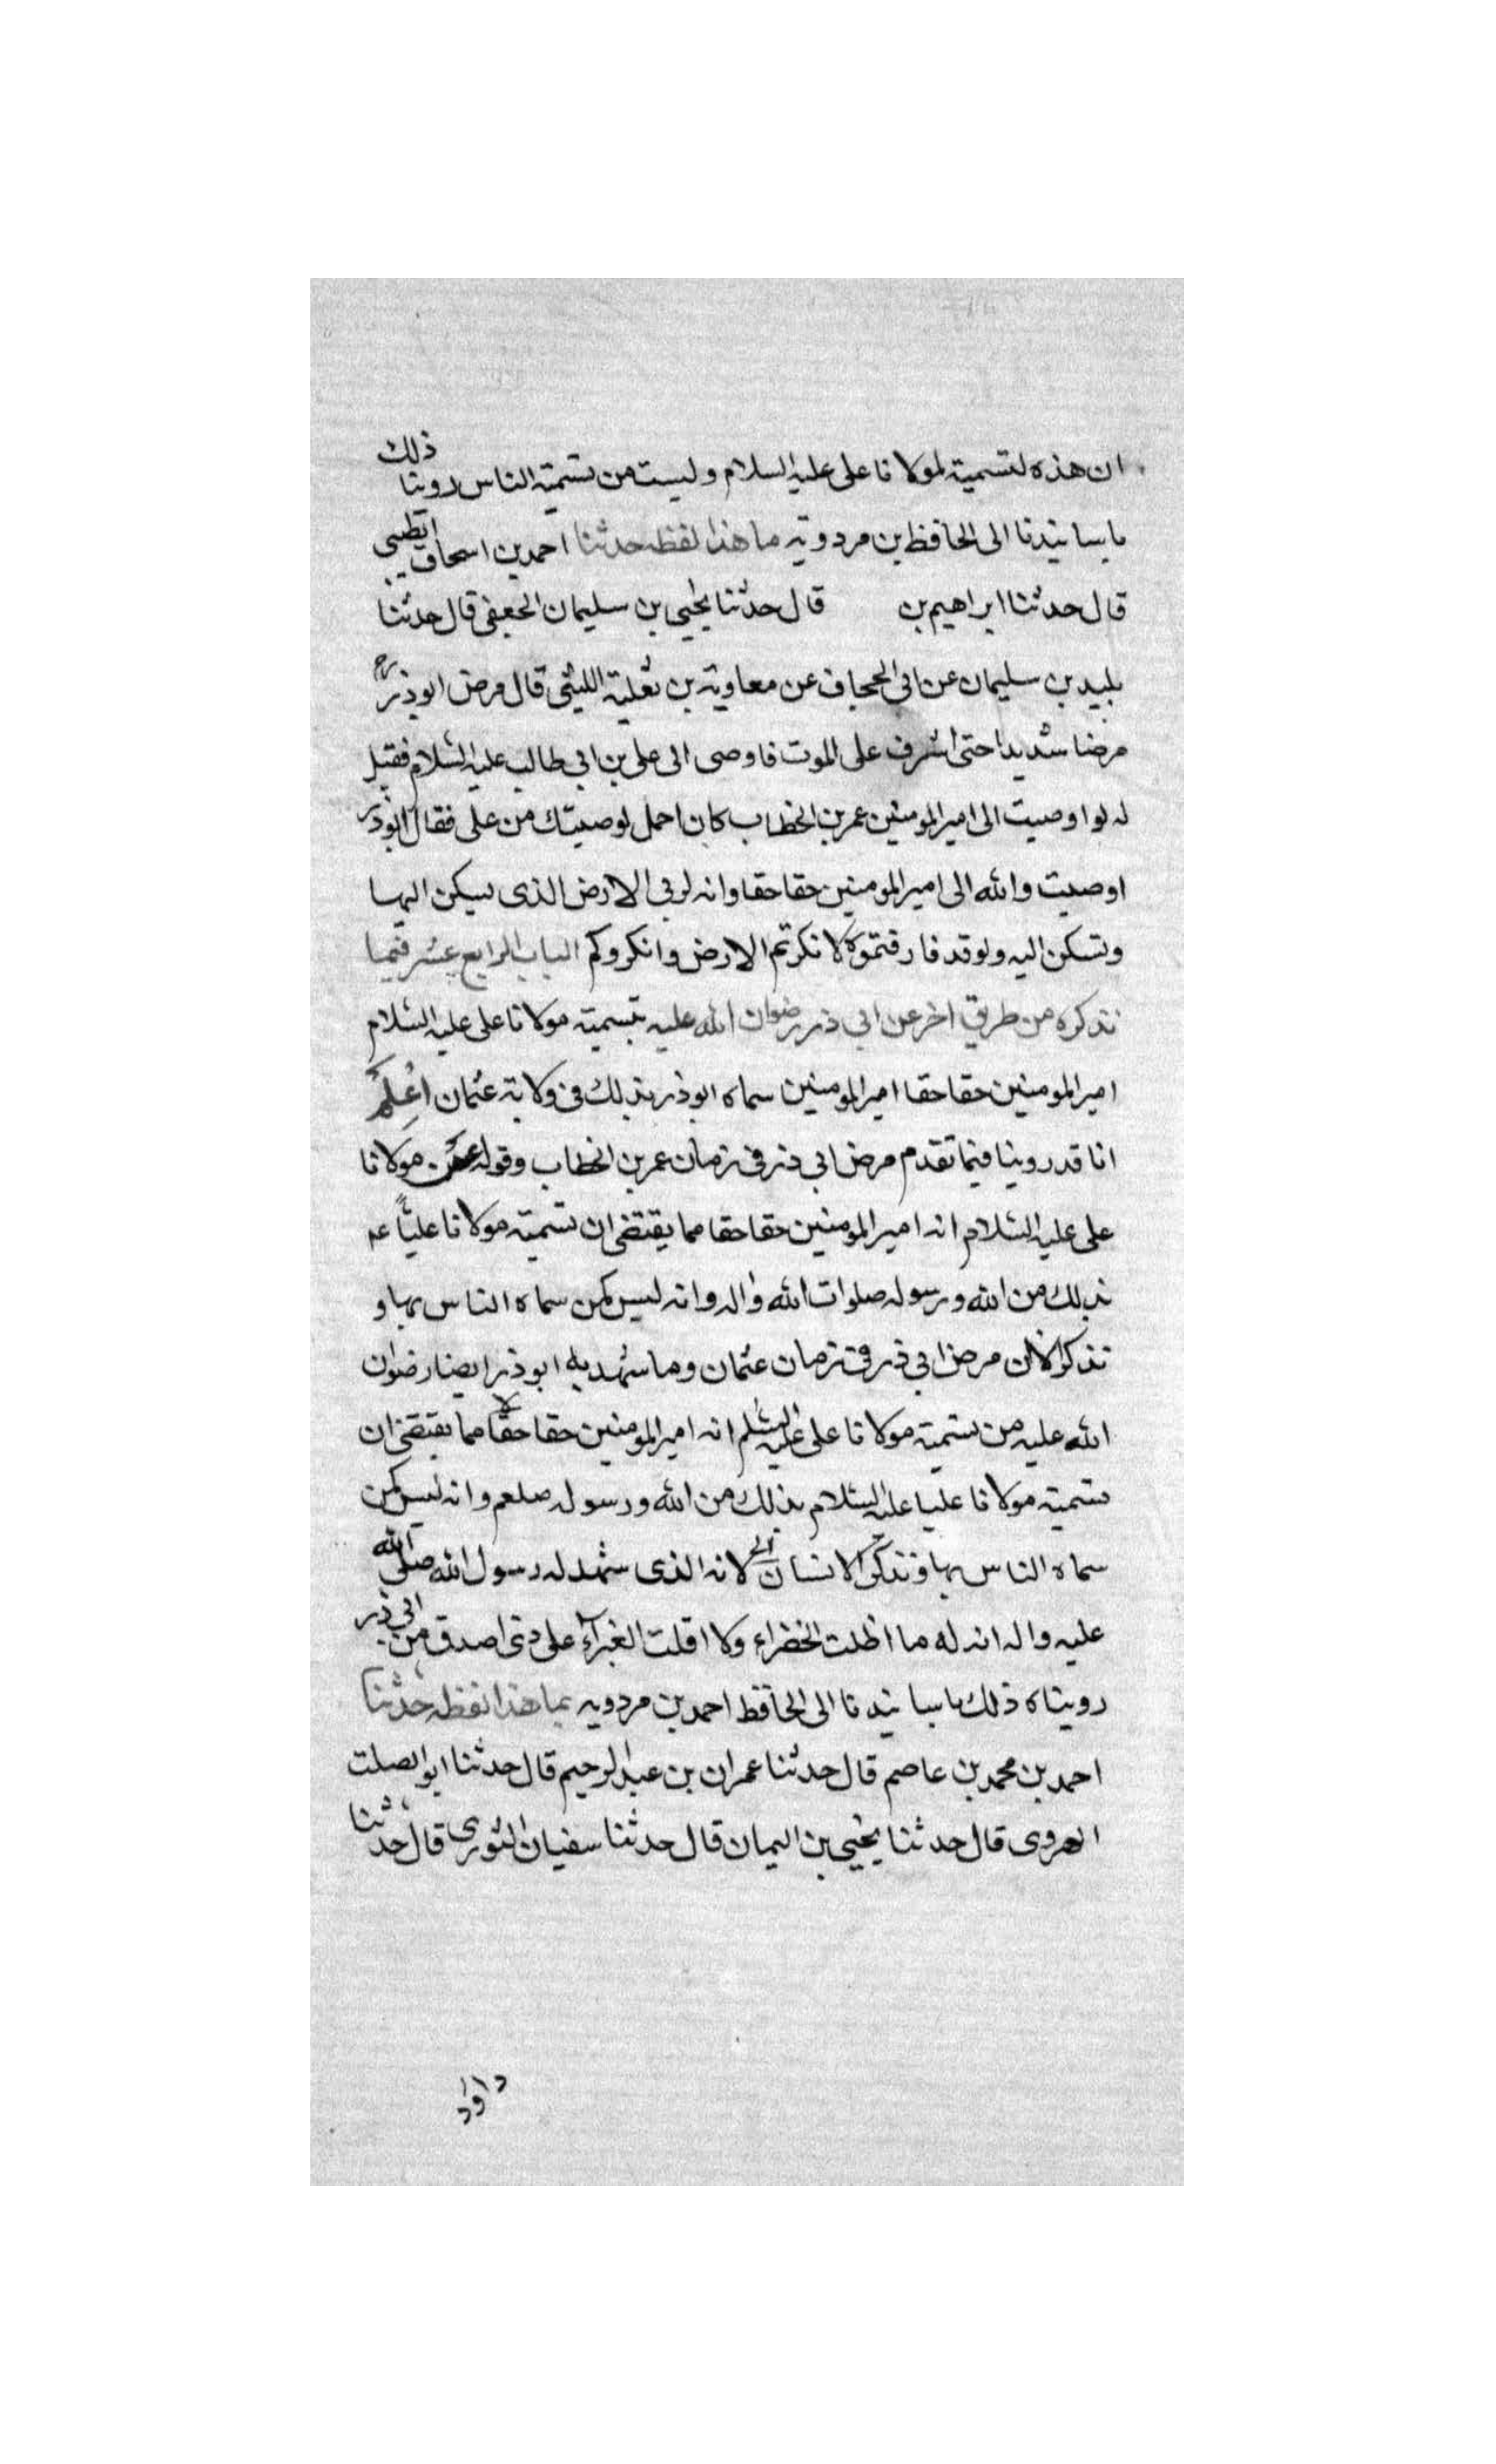 ان هذه لتسمية لمولانا على عليه السلام وليست من تسمية الناس روينا ذلك
باسانيدنا الى الحافظ بن مردويه ما هذا لفظه حدثنا احمد بن اسحاق الطيبى
قال حدثنا ابراهيم بن قال حدثنا يحيى بن سليمان الجعفى قال حدثنا
بليد بن سليمان عن ابى الجحاف عن معاوية بن ثعلبة الليثى قال مرض ابوذر ره
مرضا شديدا حتى اشرف على الموت فاوصى الى على بن ابى طالب عليه السلام فقيل
له لو اوصيت الى امير المومنين عمر بن الخطاب كان احمل لوصيتك من على فقال ابوذر
اوصيت والله الى امير المومنين حقا حقا وانه لربى الارض الذى يسكن اليها
وتسكن اليه ولو قد فارقتموه لانكرتم الارض وانكروكم الباب الرابع عشر فيما
نذكره من طريق اخر عن ابى ذر رضوان الله عليه بتسمية مولانا على عليه السلام
امير المومنين حقا حقا امير المومنين سماه ابوذر بذلك فى ولاية عثمان اعلم
انا قد روينا فيما تقدم مرض ابى ذر فى زمان عمر بن الخطاب وقوله عن مولانا
على عليه السلام انه امير المومنين حقا حقا مما يقتضى ان تسمية مولانا علياً عه
بذلك من الله ورسوله صلوات الله واله وانه ليس كمن سماه الناس بها و
نذكر الان مرض ابى ذر فى زمان عثمان وما شهد به ابوذر ايضا رضوان
الله عليه من تسمية مولانا على عليه السلم انه امير المومنين حقا حقا مما يقتضى ان
تسمية مولانا عليا عليه السلام بذلك من الله ورسوله صلعم وانه ليس كمن
سماه الناس بها ونذكر الانسان لانه الذى شهد له رسول الله صلى الله
عليه واله انه له ما اظلت الخضراء ولا اقلت الغبراء على ذى اصدق من ابى ذر
رويناه ذلك باسانيدنا الى الحافظ احمد بن مردويه بما هذا لفظه حدثنا
احمد بن محمد بن عاصم قال حدثنا عمران بن عبد الرحيم قال حدثنا ابو الصلت
الهروى قال حدثنا يحيى بن اليمان قال حدثنا سفيان الثورى قال حدثنا
داود